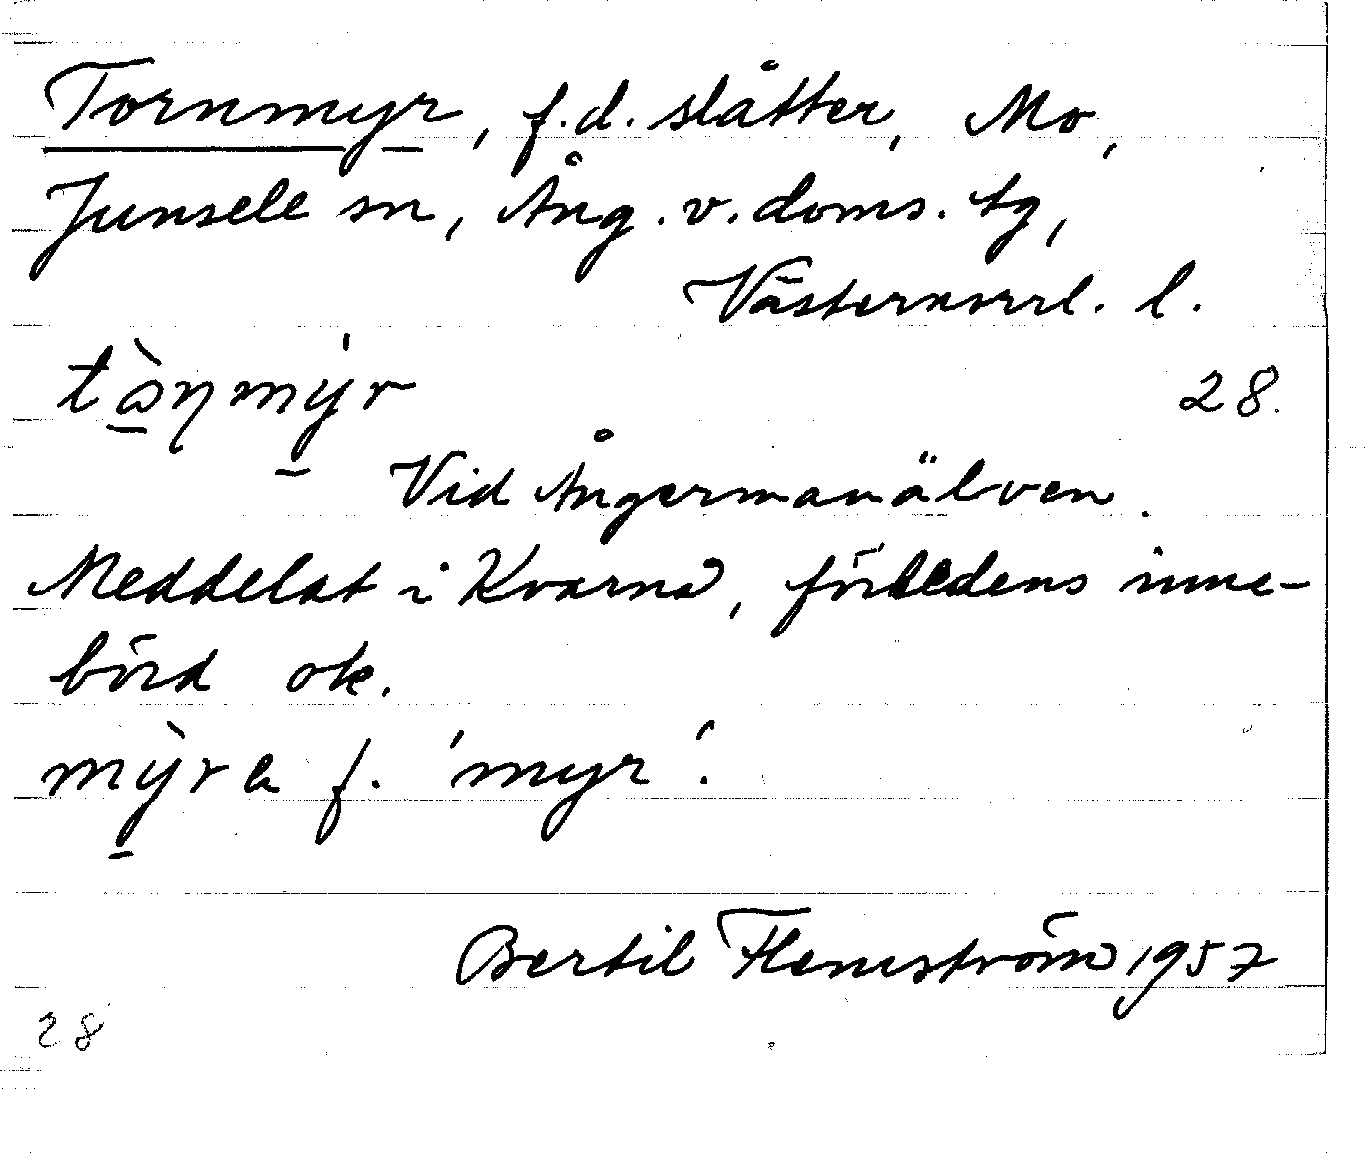 Tornmyr, f.d. slåtter, Mo,
Junsele sn, Ång. v. doms. tg,
Västernorrl. l.
tɔ̀ɳmýr
28.
Vid Ångermanälven.
Meddelat i Kvarnå, förledens inne-
börd ok.
mỳra f. 'myr'.
Bertil Flemström 1957
28